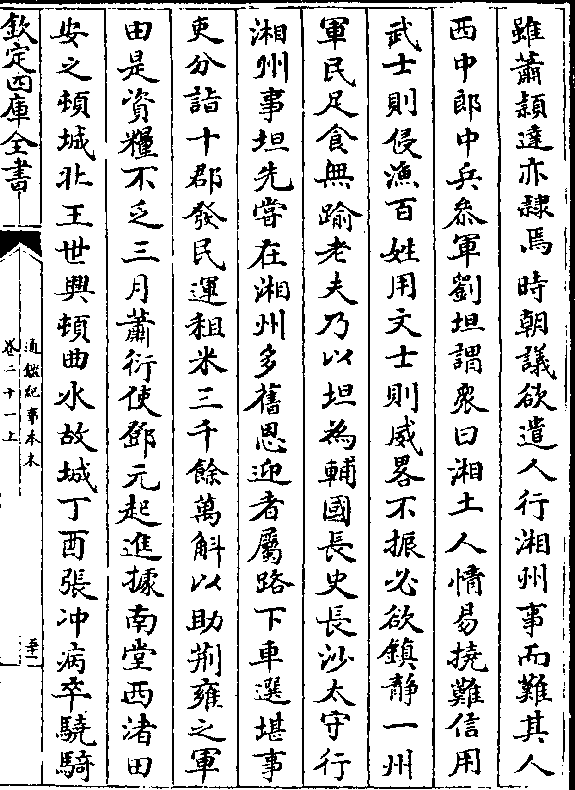 雖蕭頴達亦隸焉時朝議欲遣人行湘州事而難其人
西中郎中兵叅軍劉坦謂衆曰湘土人情易擾難信用
武士則侵漁百姓用文士則威畧不振必欲鎮静一州
軍民足食無踰老夫乃以坦為輔國長史長沙太守行
湘州事坦先嘗在湘州多舊恩迎者屬路下車選堪事
吏分詣十郡發民運租米三千餘萬斛以助荆雍之軍
由是資糧不乏三月蕭衍使鄧元起進據南堂西渚田
安之頓城北王世興頓曲水故城丁酉張冲病卒驍騎
欽定四庫全書
通鑑紀事本末
卷二十一上